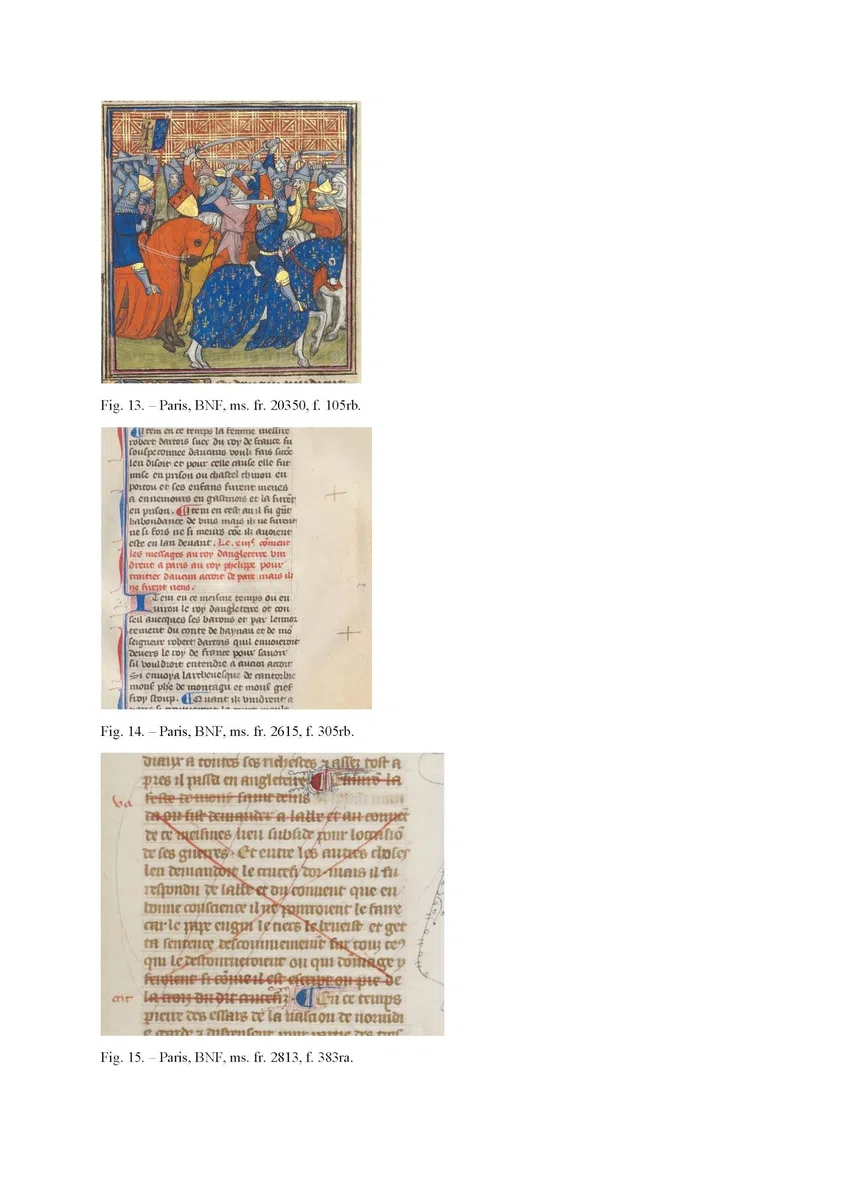 Fig. 13. – Paris, BNF, ms. fr. 20350, f. 105rb.
Item en ce temps la femme messire
robert dartois suer du roy de france fu
souspeconnee daucuns voulz fais sicõe
len disoit et pour celle cause elle fut
mise en prison ou chastel chinon en
poitou et ses enfans furent menes
a ennemours en gastinois et la furẽt
en prison. Item en cest an il fu grãt
habondance de vins mais ilz ne furent
ne si fors ne si meurs cõe ilz avoient
este en lan devant. Le .viiie. cõment
les messages au roy dangleterre vin
drent a paris au roy phelippe pour
traitier daucun accort de paix mais ilz
ne firent riens.
Item en ce meisme temps ou en
viron le roy dangleterre ot con
seil avecques ses barons et par lennor
tement du conte de haynau et de mõ
seigneur robert dartois quil envoieroit
devers le roy de france pour savoir
sil vouldroit entendre a aucun accort
Si envoya larchevesque de cantorbie
mons phe de montagu et mons gief
froy scoup. Quant ilz vindrent a
Fig. 14. – Paris, BNF, ms. fr. 2615, f. 305rb.
diaux a toutes ses richesces et assez tost a
pres il passa en angleterre
feste de mons saint denis
va
da ou fist demander a labbe et au convẽt
de ce meismes lieu subside pour loccasiõ
de ses guerres. Et entre les autres choses
len demandoit le crucefi dor. mais il fu
respondu de labbe et du convent que en
bonne conscience il ne pourroient le faire
car le pape eugin le tiers le beneist et get
ta sentence descommeniemẽt sur touz ceˀ
qui le destourneroient ou qui domage y
feroient si cõme il est escript ou pie de
cat
la croiz du dit crucefi En ce temps
pierre des essars de la nascion de normdi
e garde et dispenseur pour partie des tres
Fig. 15. – Paris, BNF, ms. fr. 2813, f. 383ra.